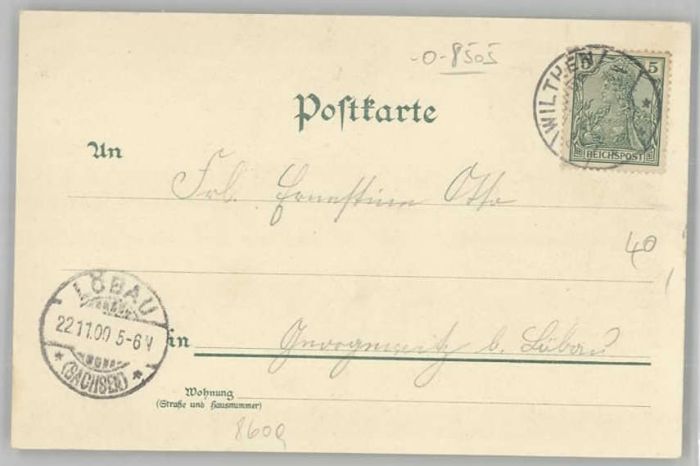 -0-8505
WILTHEN
5 5
REICHSPOST
Postkarte
An
Frl. Ernestine Otto
40
LÖBAU
22.11.00 5-6 N
(SACHSEN)
in b. Löbau
Wohnung
(Straße und Hausnummer)
8609